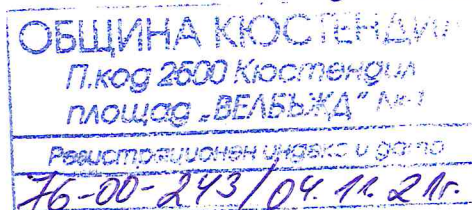 ОБЩИНА КЮСТЕНДИЛ
П.код 2600 Кюстендил
площад „ВЕЛБЪЖД" №1
Регистрационен индекс и дата
76-00-243/04.11.21г.